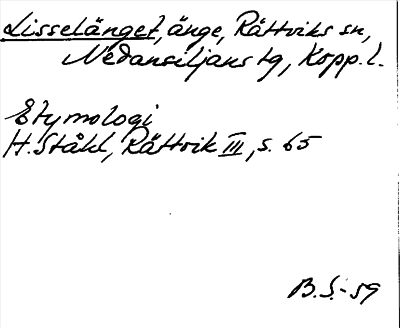 Lisselänget, änge, Rättviks sn,
Nedansiljans tg, Kopp. l.
Etymologi
H. Ståhl, Rättvik III, s. 65
B. S. - 59